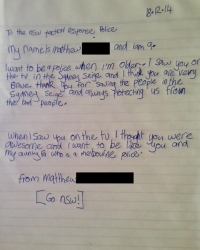 8.12.14
To the NSW Tactical Response Police
My name is Matthew and I am 9.
I want to be a police when I'm older. I saw you on
the tv in the Sydney Seige and I think you are very
Brave. Thank you for saving the people in the
Sydney Seige and always protecting us from
the bad people.
When I saw you on the tv, I thought you were
awesome and I want to be like you and
my aunty who is a melbourne police.
From Matthew
[Go nsw!]